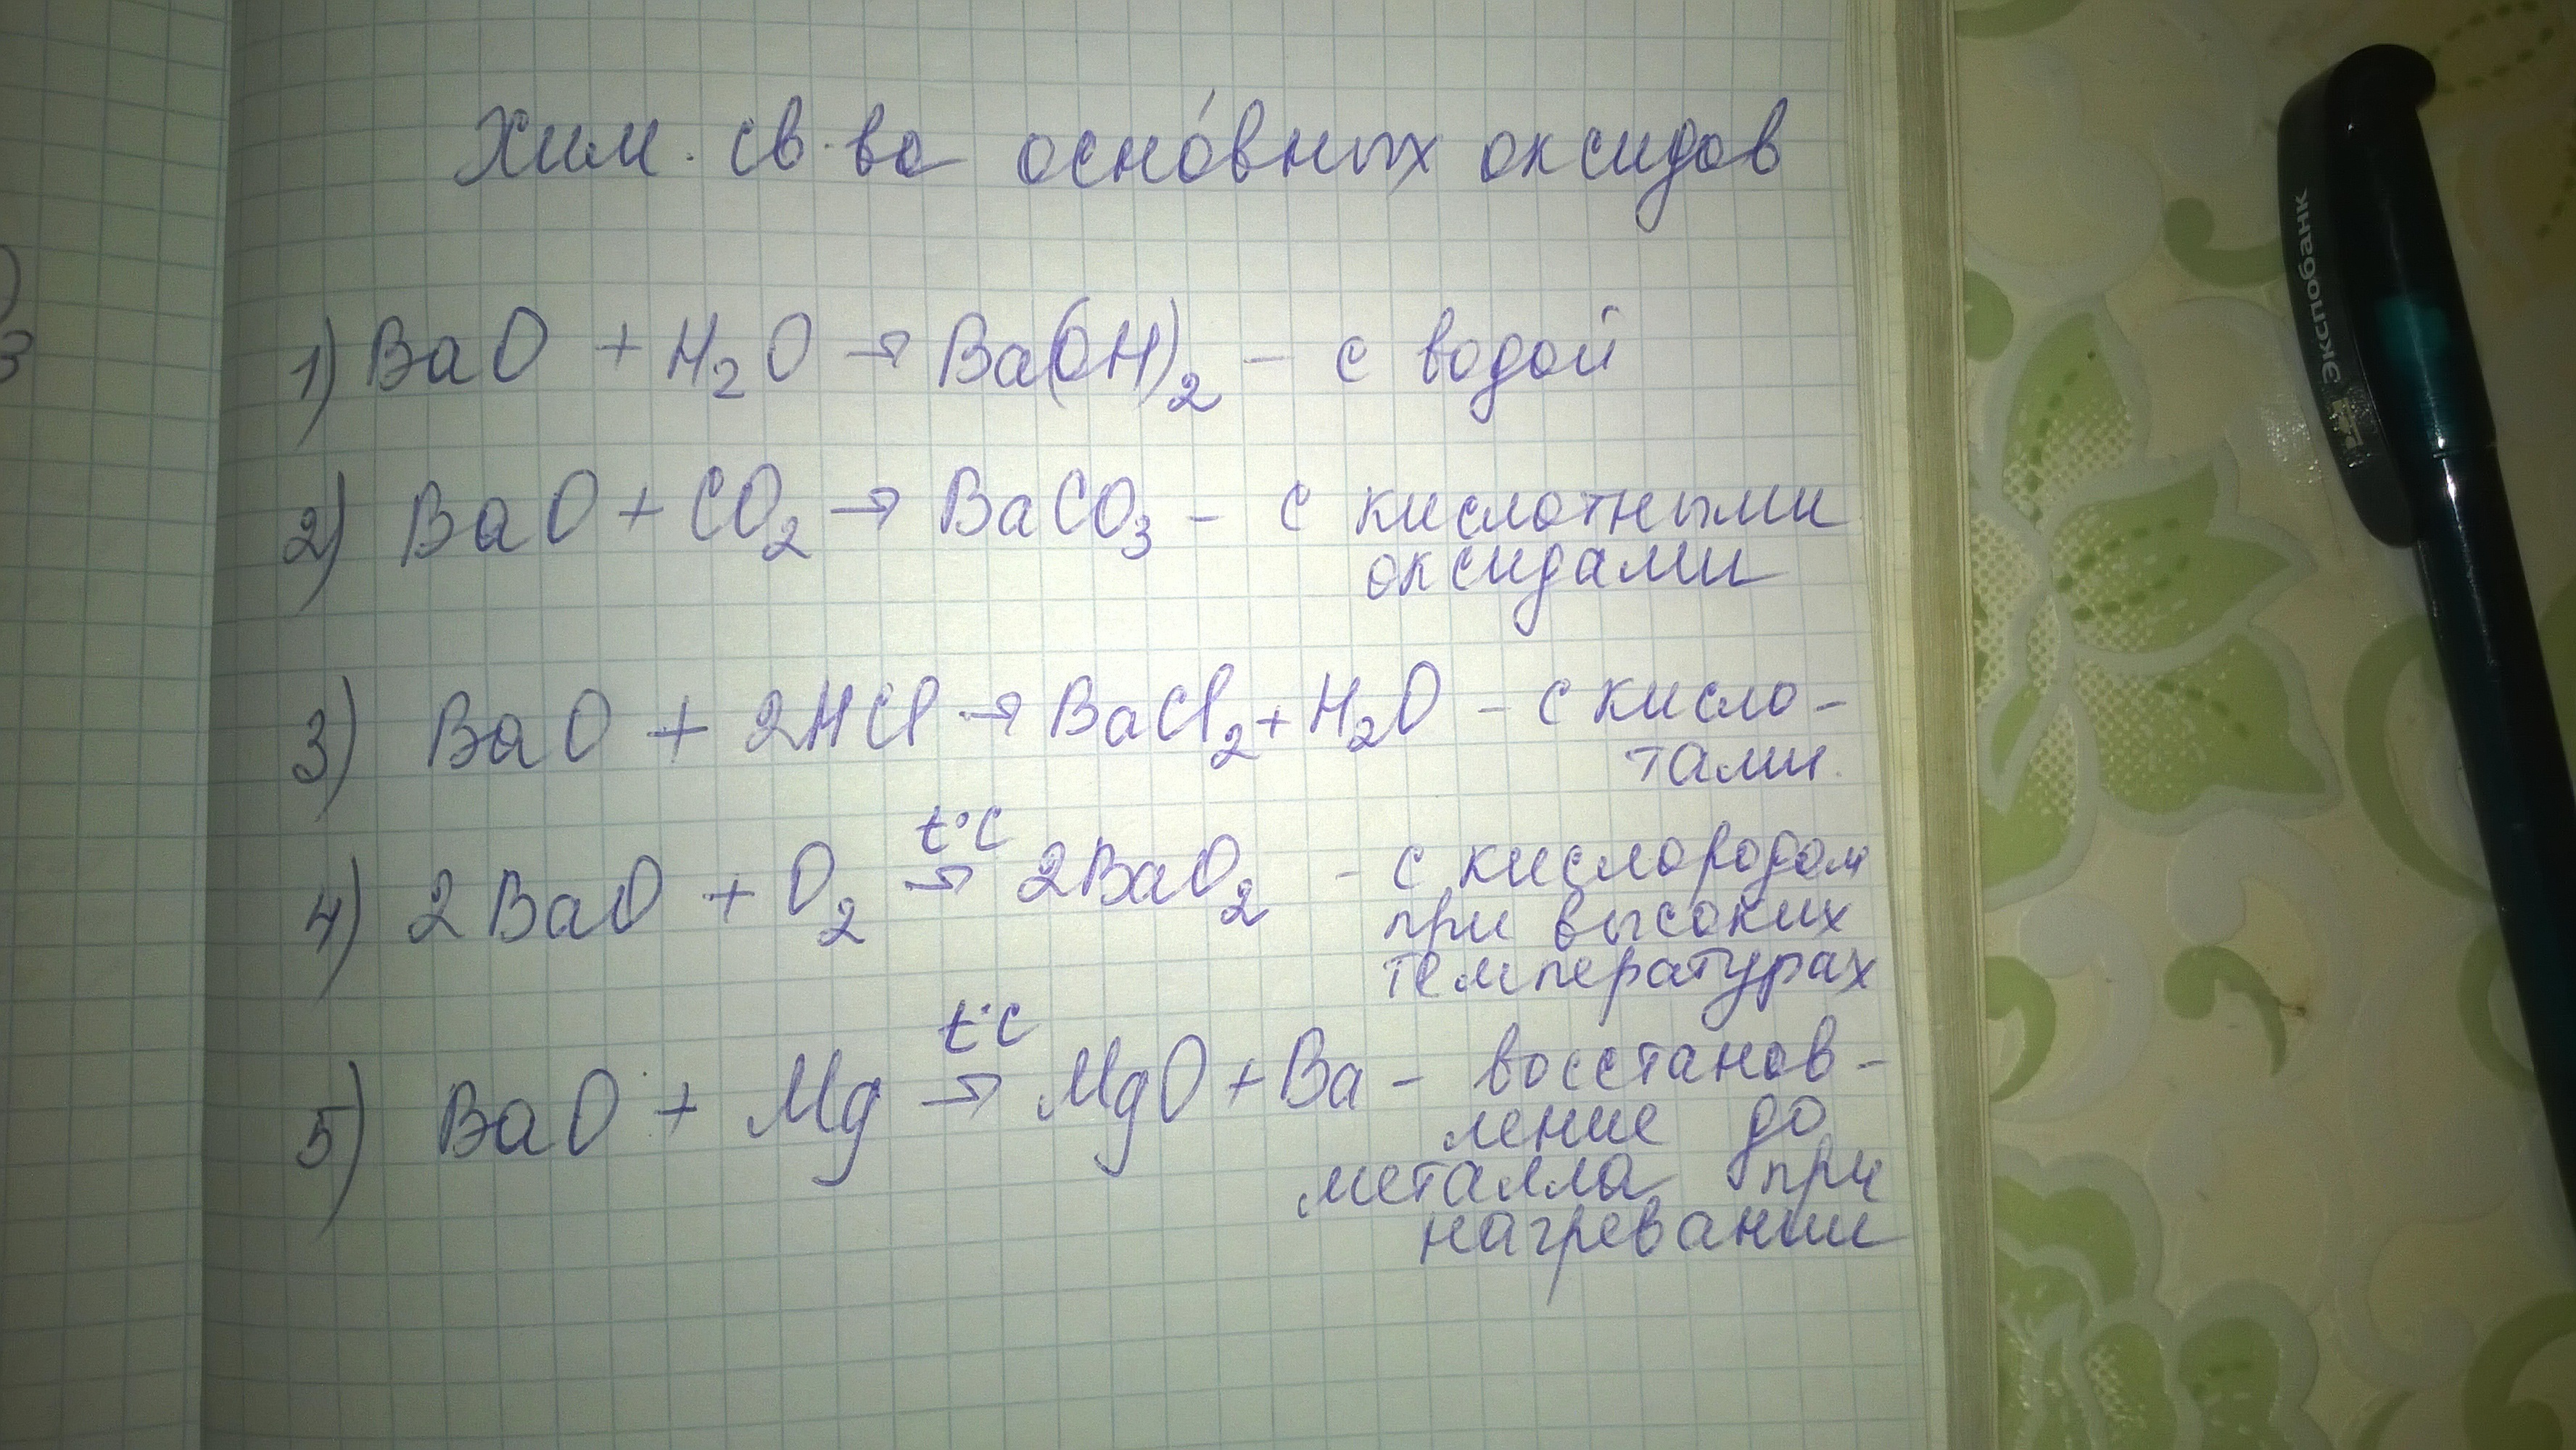 Хим. св-ва осно́вных оксидов
1) BaO + H₂O → Ba(OH)₂ – с водой
2) BaO + CO₂ → BaCO₃ – с кислотными
оксидами
3) BaO + 2HCl → BaCl₂ + H₂O – с кисло-
тами.
t°C
4) 2BaO + O₂ → 2BaO₂ – с кислородом
при высоких
температурах
t°C
5) BaO + Mg → MgO + Ba – восстанов-
ление до
металла при
нагревании
3
Экспобанк